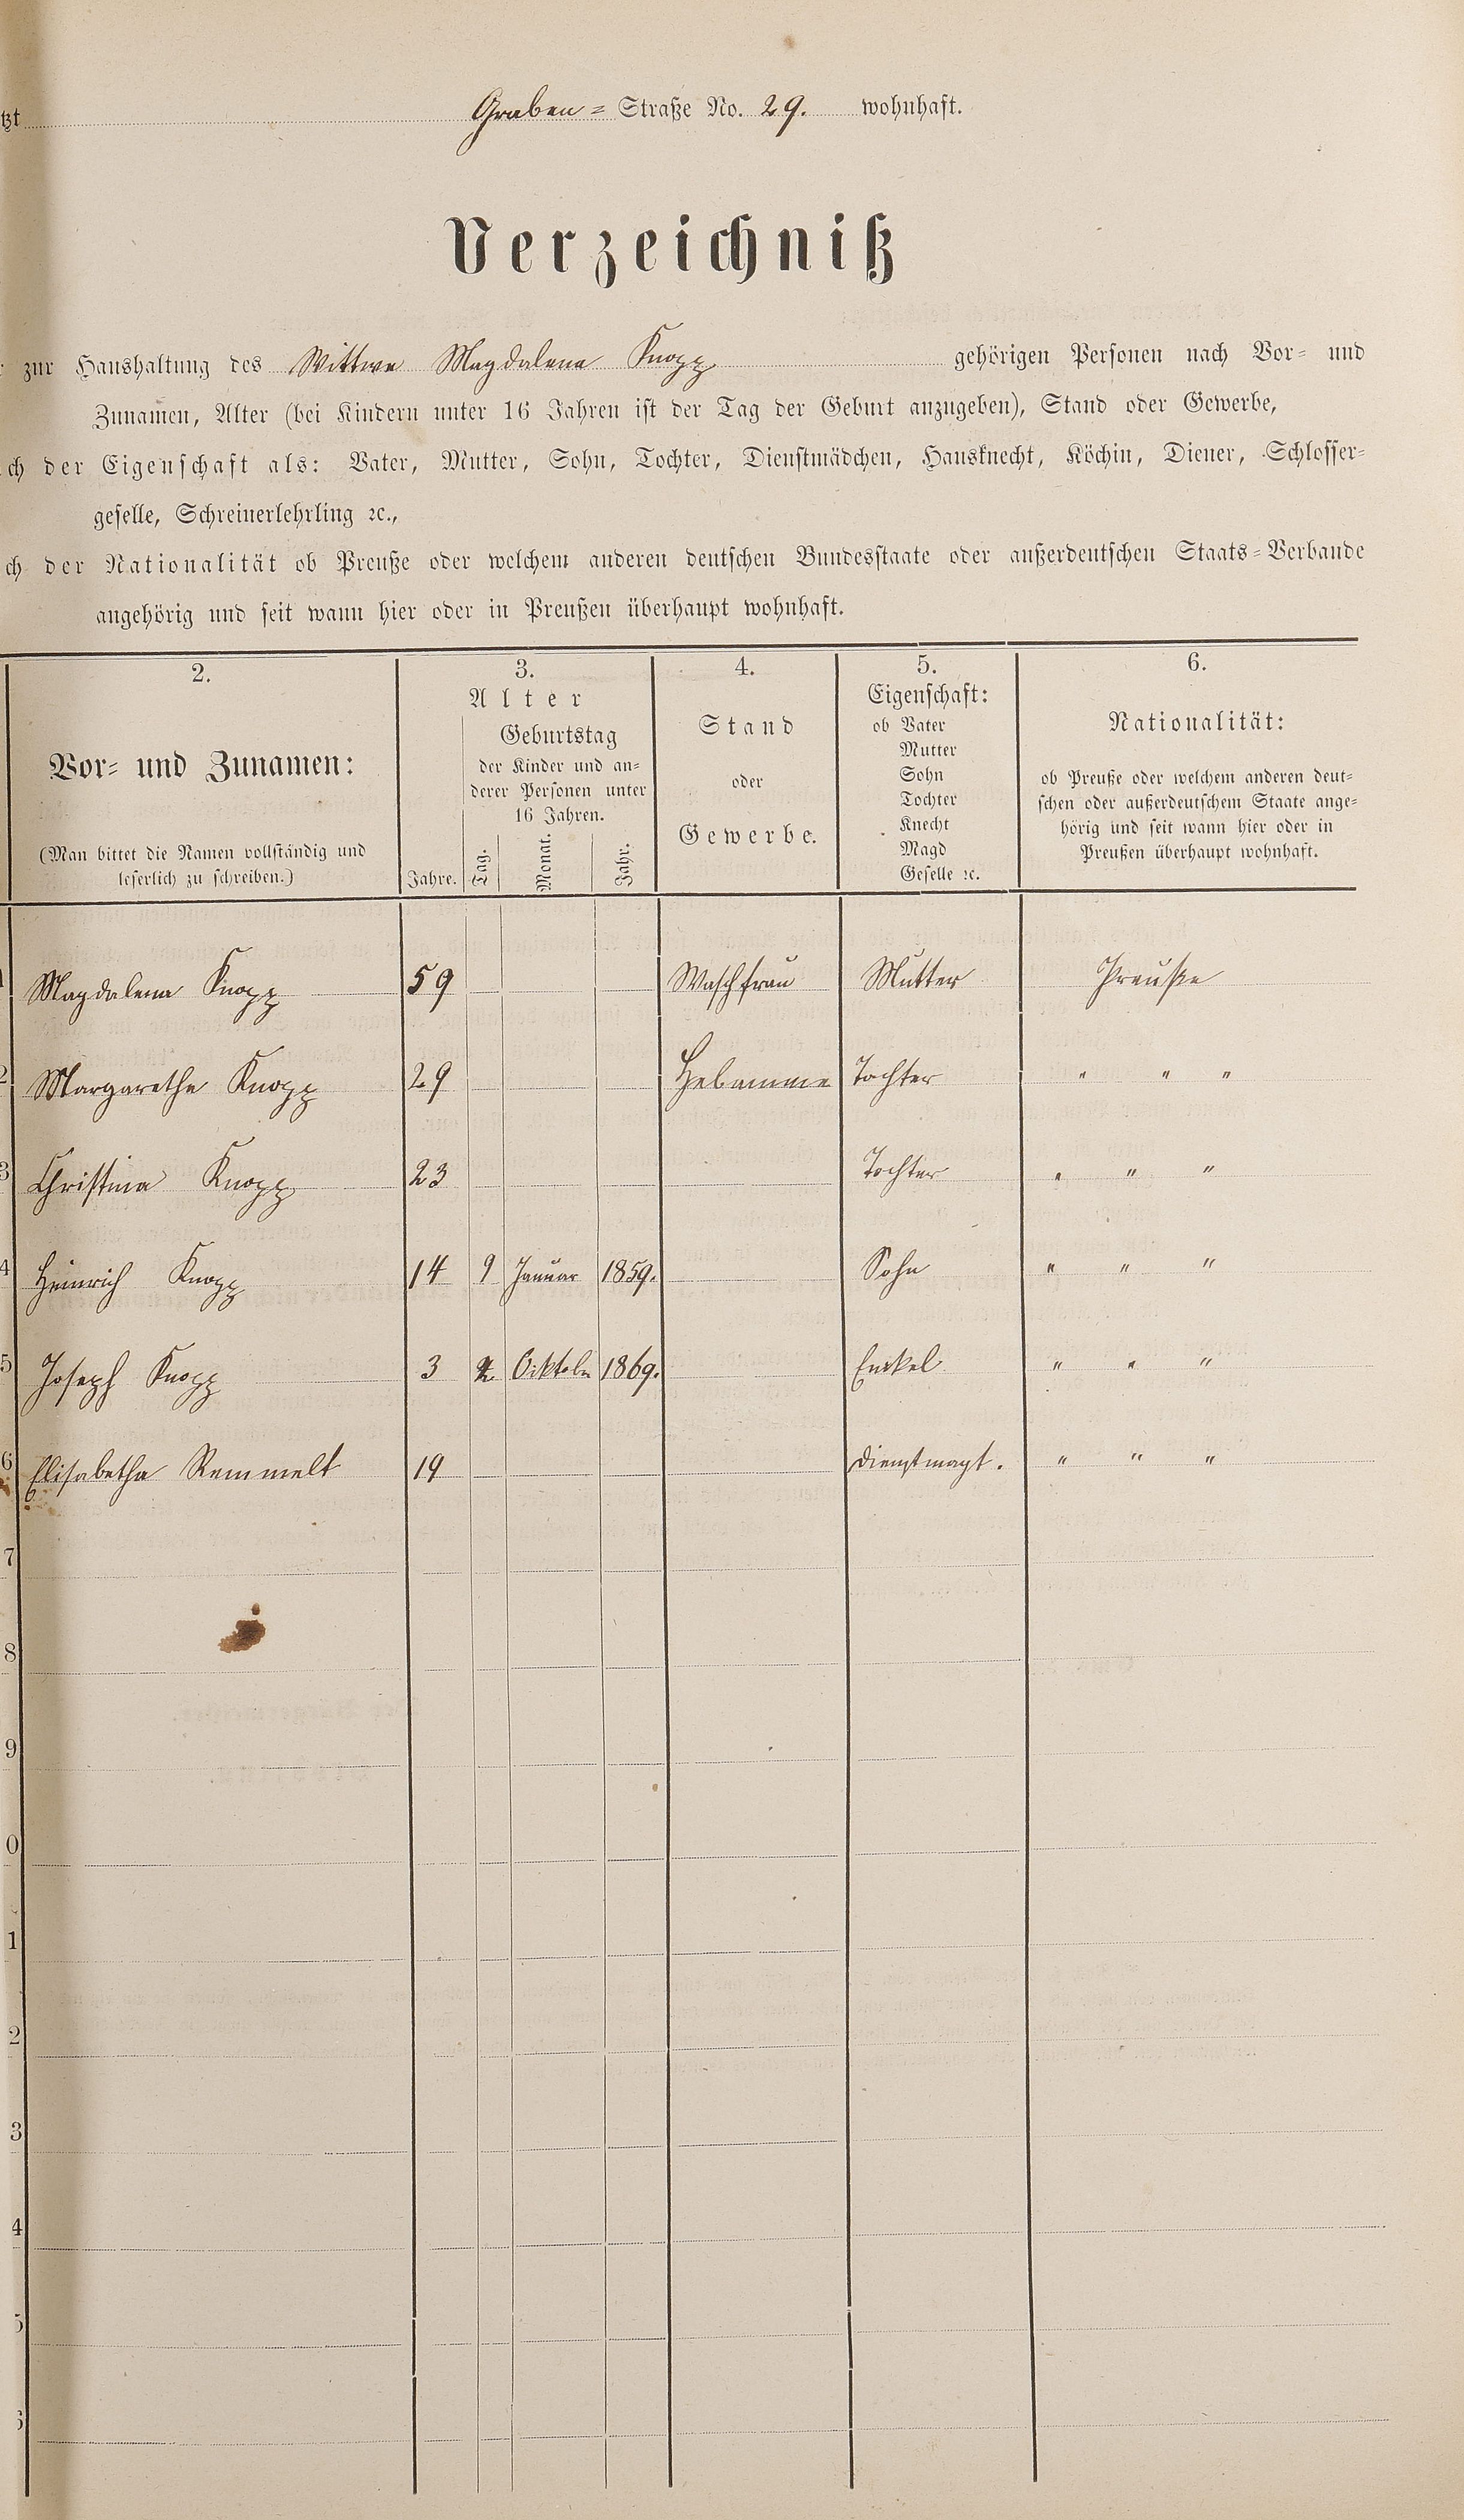 tzt Graben = Straße No. 29. wohnhaft.
Verzeichniß
zur Haushaltung des Wittwe Magdalena Knopp gehörigen Personen nach Vor- und
Zunamen, Alter (bei Kindern unter 16 Jahren ist der Tag der Geburt anzugeben), Stand oder Gewerbe,
ch der Eigenschaft als: Vater, Mutter, Sohn, Tochter, Dienstmädchen, Hausknecht, Köchin, Diener, Schlosser-
geselle, Schreinerlehrling ꝛc.,
ch der Nationalität ob Preuße oder welchem anderen deutschen Bundesstaate oder außerdeutschen Staats-Verbande
angehörig und seit wann hier oder in Preußen überhaupt wohnhaft.
2.
Vor- und Zunamen:
(Man bittet die Namen vollständig und
leserlich zu schreiben.)
3.
Alter
Jahre.
Geburtstag
der Kinder und an-
derer Personen unter
16 Jahren.
Tag.
Monat.
Jahr.
4.
Stand
oder
Gewerbe.
5.
Eigenschaft:
ob Vater
Mutter
Sohn
Tochter
Knecht
Magd
Geselle ꝛc.
6.
Nationalität:
ob Preuße oder welchem anderen deut-
schen oder außerdeutschem Staate ange-
hörig und seit wann hier oder in
Preußen überhaupt wohnhaft.
Magdalena Knopp 59 Waschfrau Mutter Preuße
2 Margarethe Knopp 29 Hebamme Tochter " " "
3 Christina Knopp 23 Tochter " " "
4 Heinrich Knopp 14 9 Januar 1859. Sohn " " "
5 Joseph Knopp 3 Oiktober 1869. Enkel " " "
6 Elisabetha Remmelt 19 Dienstmagt. " " "
7
8
9
0
1
2
3
4
5
6